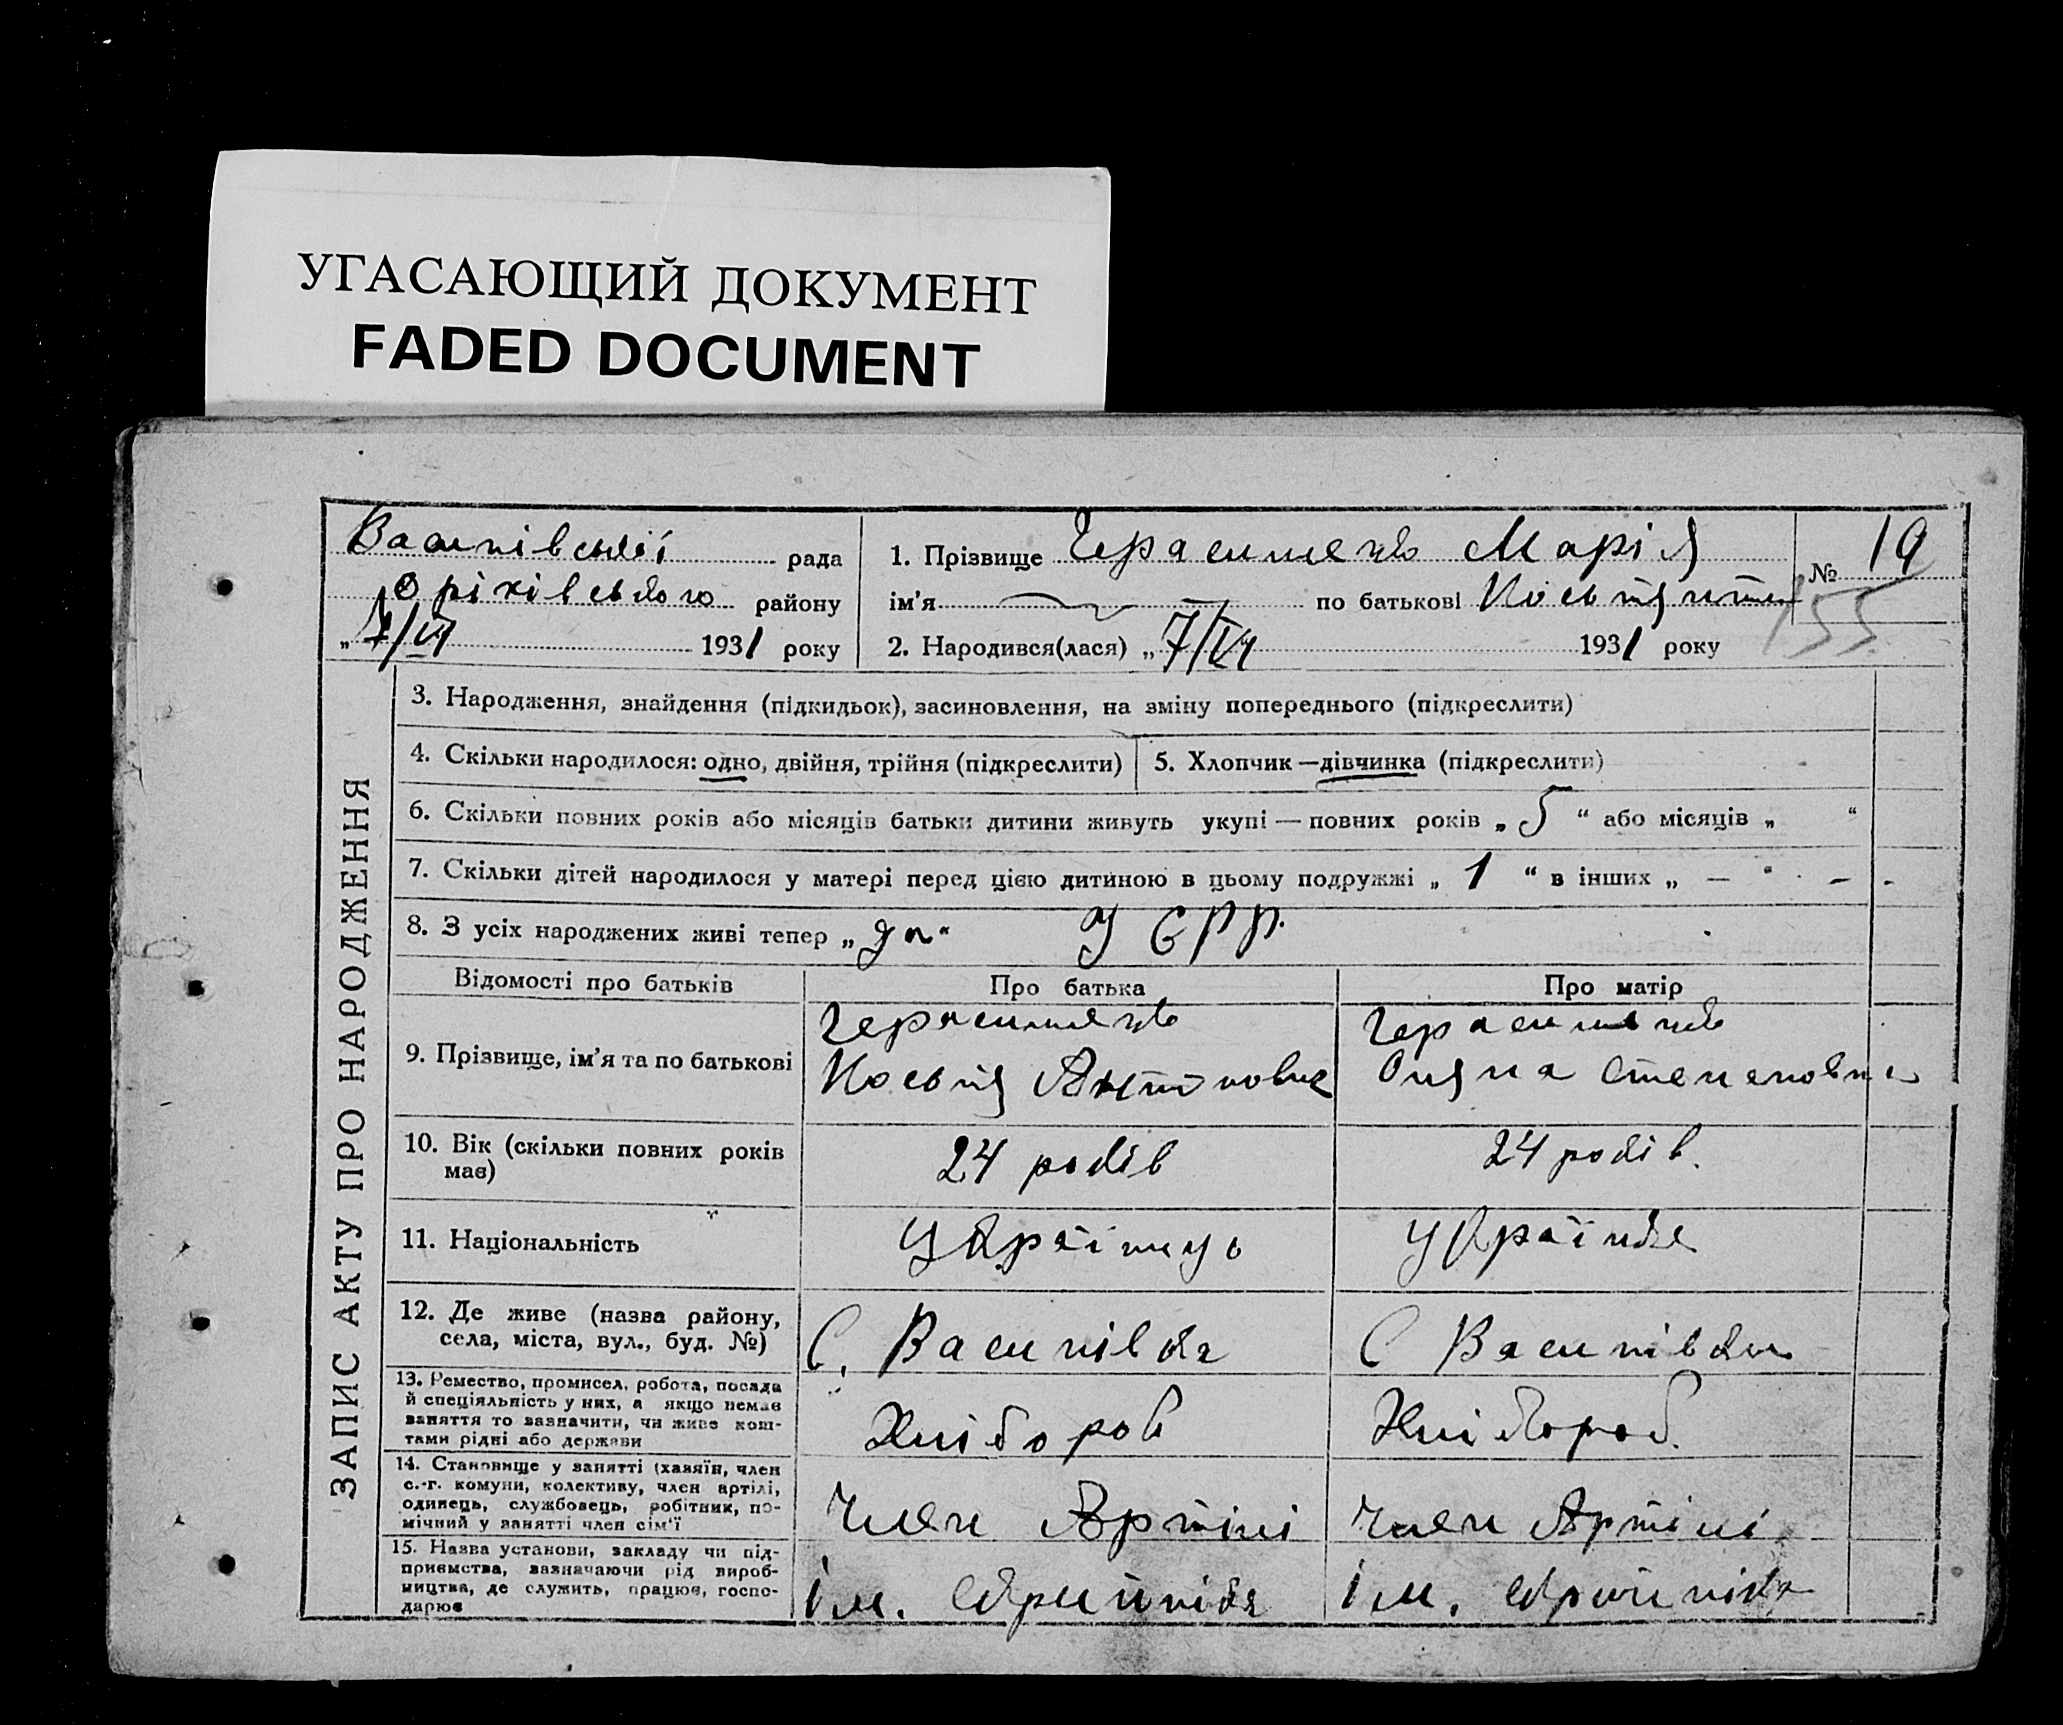 УГАСАЮЩИЙ ДОКУМЕНТ
FADED DOCUMENT
Василівської рада
Оріхівського району
„ 7/VI 1931 року
1. Прізвище Герасименко Марія
ім’я по батькові
2. Народився(лася) „ 7/VI 1931 року
№ 19
155
ЗАПИС АКТУ ПРО НАРОДЖЕННЯ
3. Народження, знайдення (підкидьок), засиновлення, на зміну попереднього (підкреслити)
4. Скільки народилося: одно, двійня, трійня (підкреслити)
5. Хлопчик — дівчинка (підкреслити)
6. Скільки повних років або місяців батьки дитини живуть укупі — повних років „ 5 “ або місяців „ “
7. Скільки дітей народилося у матері перед цією дитиною в цьому подружжі „ 1 “ в інших „ — “
8. З усіх народжених живі тепер „ “ У С Р Р.
Відомості про батьків
Про батька
Про матір
9. Прізвище, ім’я та по батькові
Герасименко
Антонович
Герасименко
Степановна
10. Вік (скільки повних років має)
24 років
24 років.
11. Національність
Українць
Українка
12. Де живе (назва району, села, міста, вул., буд. №)
С. Василівка
С Василівка
13. Ремество, промисел, робота, посада й спеціяльність у них, а якщо немає заняття то зазначити, чи живе коштами рідні або держави
Хлібороб
Хлібороб.
14. Становище у занятті (хазяїн, член с.-г. комуни, колективу, член артілі, одинець, службовець, робітник, помічний у занятті член сім’ї
Член Артілі
Член Артілі
15. Назва установи, закладу чи підприємства, зазначаючи рід виробництва, де служить, працює, господарює
ім.
ім.